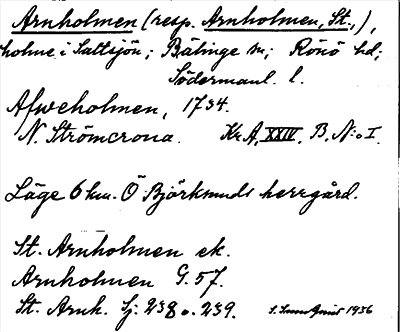 Arnholmen (resp. Arnholmen, St.,),
holme i Saltsjön; Bälinge sn; Rönö hd;
Södermanl. l.
Afweholmen, 1734.
N. Strömcrona. Kr. A. XXIV. B. N:o I.
Läge 6 km. Ö Björksunds herrgård.
St. Arnholmen ek.
Arnholmen G. 57.
St. Arnh. Sj. 238 o. 239. 1936